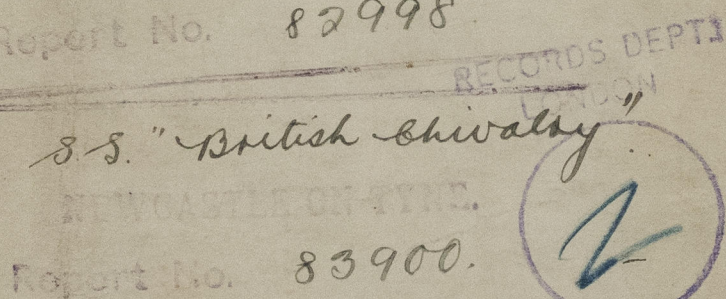 Report No. 82998.
RECORDS DEPT.
LONDON
S.S. "British Chivalry"
NEWCASTLE-ON-TYNE.
Report No. 83900.